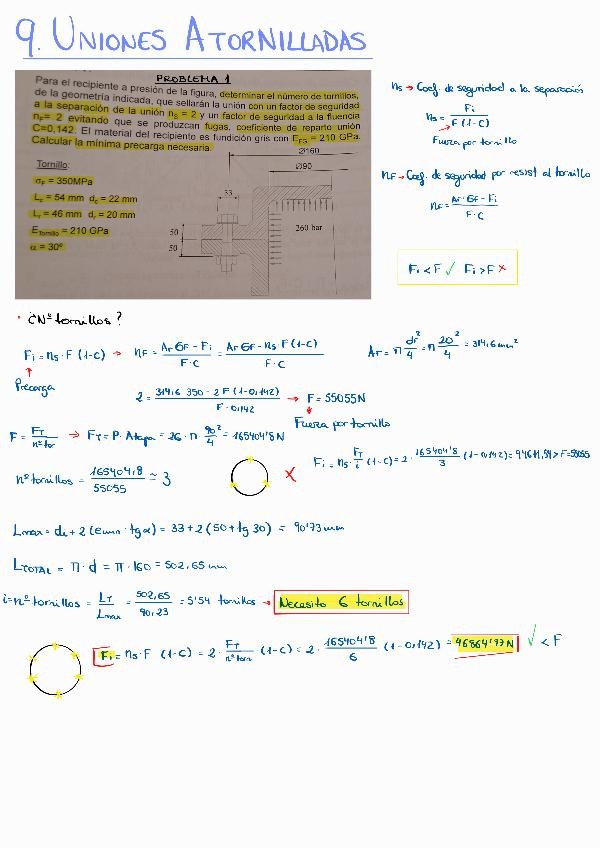 9. UNIONES ATORNILLADAS
PROBLEMA 1
Para el recipiente a presión de la figura, determinar el número de tornillos,
de la geometría indicada, que sellarán la unión con un factor de seguridad
a la separación de la unión nS = 2 y un factor de seguridad a la fluencia
nF= 2 evitando que se produzcan fugas, coeficiente de reparto unión
C=0,142. El material del recipiente es fundición gris con EFG = 210 GPa.
Calcular la mínima precarga necesaria.
Ø160
Ø90
Tornillo:
σF = 350MPa
Ls = 54 mm ds = 22 mm
Lr = 46 mm dr = 20 mm
ETornillo = 210 GPa
α = 30º
33
50
50
260 bar
ns → Coef. de seguridad a la separación
ns = Fi / F(1-C)
Fuerza por tornillo
nF → Coef. de seguridad por resist al tornillo
nF = Ar·σF - Fi / F·C
Fi < F ✓ Fi > F ×
· ¿Nº tornillos?
Fi = ns·F (1-C) → nF = Ar σF - Fi / F·C = Ar σF - ns·F(1-C) / F·C
Ar = π dr² / 4 = π 20² / 4 = 314'6 mm²
Precarga
2 = 314'6 · 350 - 2F(1-0,142) / F·0,142 → F = 55055N
Fuerza por tornillo
F = FT / nº tor → FT = P·Atapa = 26·π·90² / 4 = 165404'8 N
Fi = ns· FT / i (1-C) = 2· 165404'8 / 3 (1-0,142) = 94611,54 > F = 55055
nº tornillos = 165404,8 / 55055 ≈ 3
×
Lmax = di + 2 (emin · tgα) = 33 + 2 (50 + tg 30) = 90'73 mm
LTOTAL = π·d = π·160 = 502,65 mm
i = nº tornillos = LT / Lmax = 502,65 / 90,23 = 5'54 tornillos → Necesito 6 tornillos
Fi = ns·F (1-C) = 2· FT / nºtorn (1-C) = 2· 165404'8 / 6 (1-0,142) = 46864'77 N ✓ < F